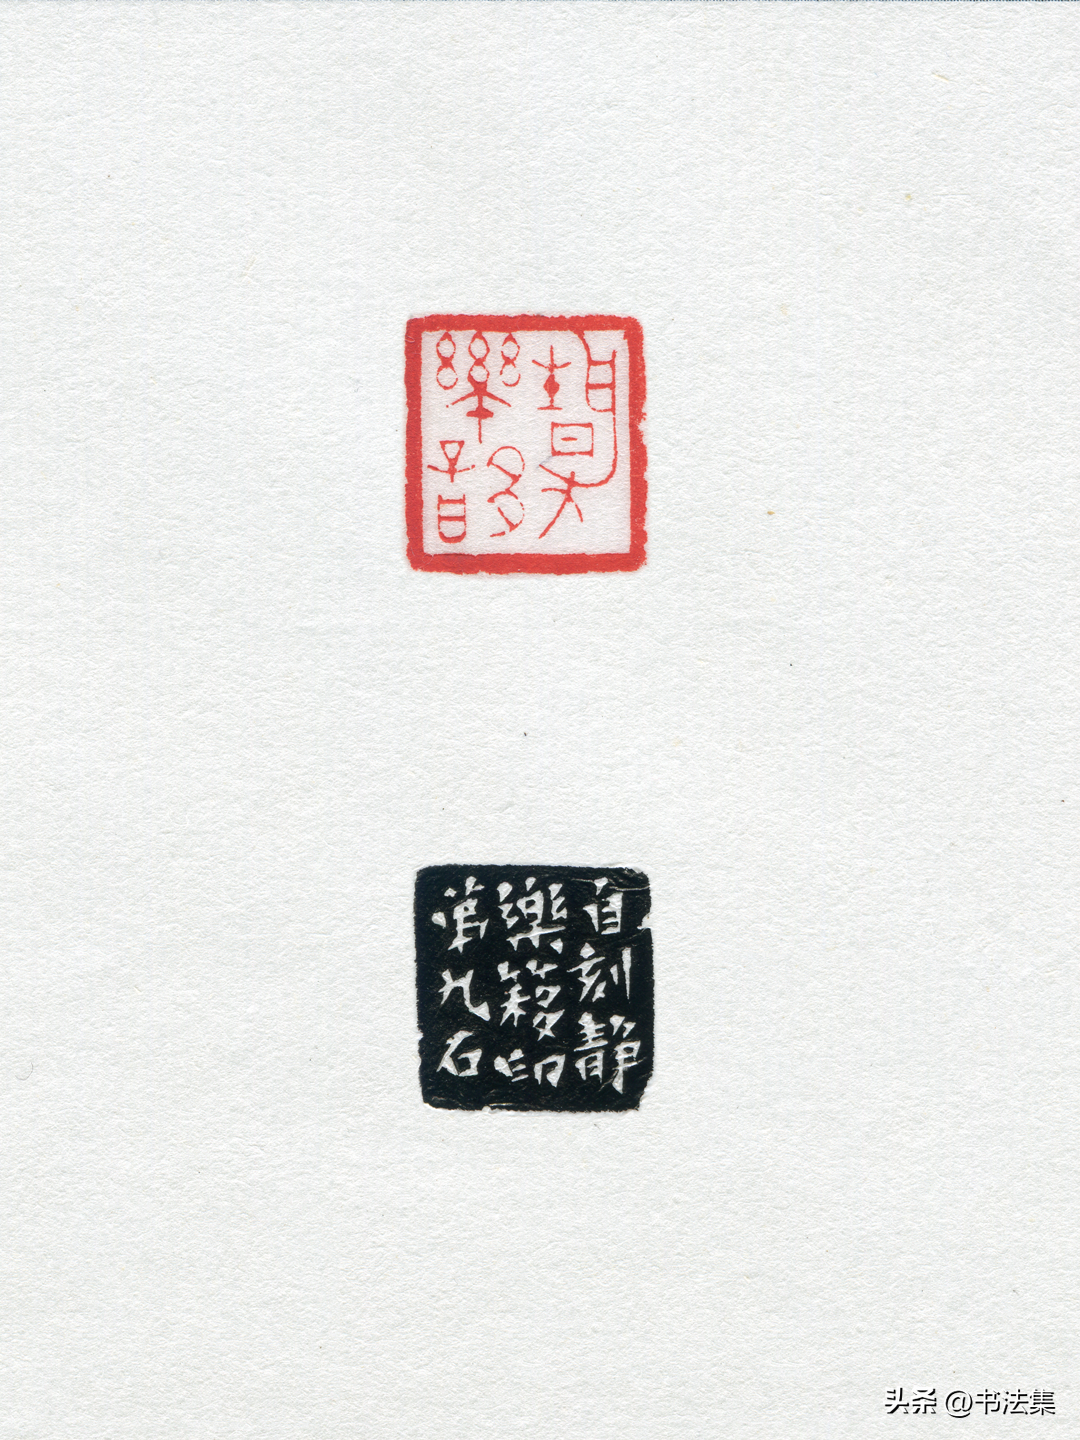 樂
謻
自刻靜
樂簃印
第九石
头条 @书法集